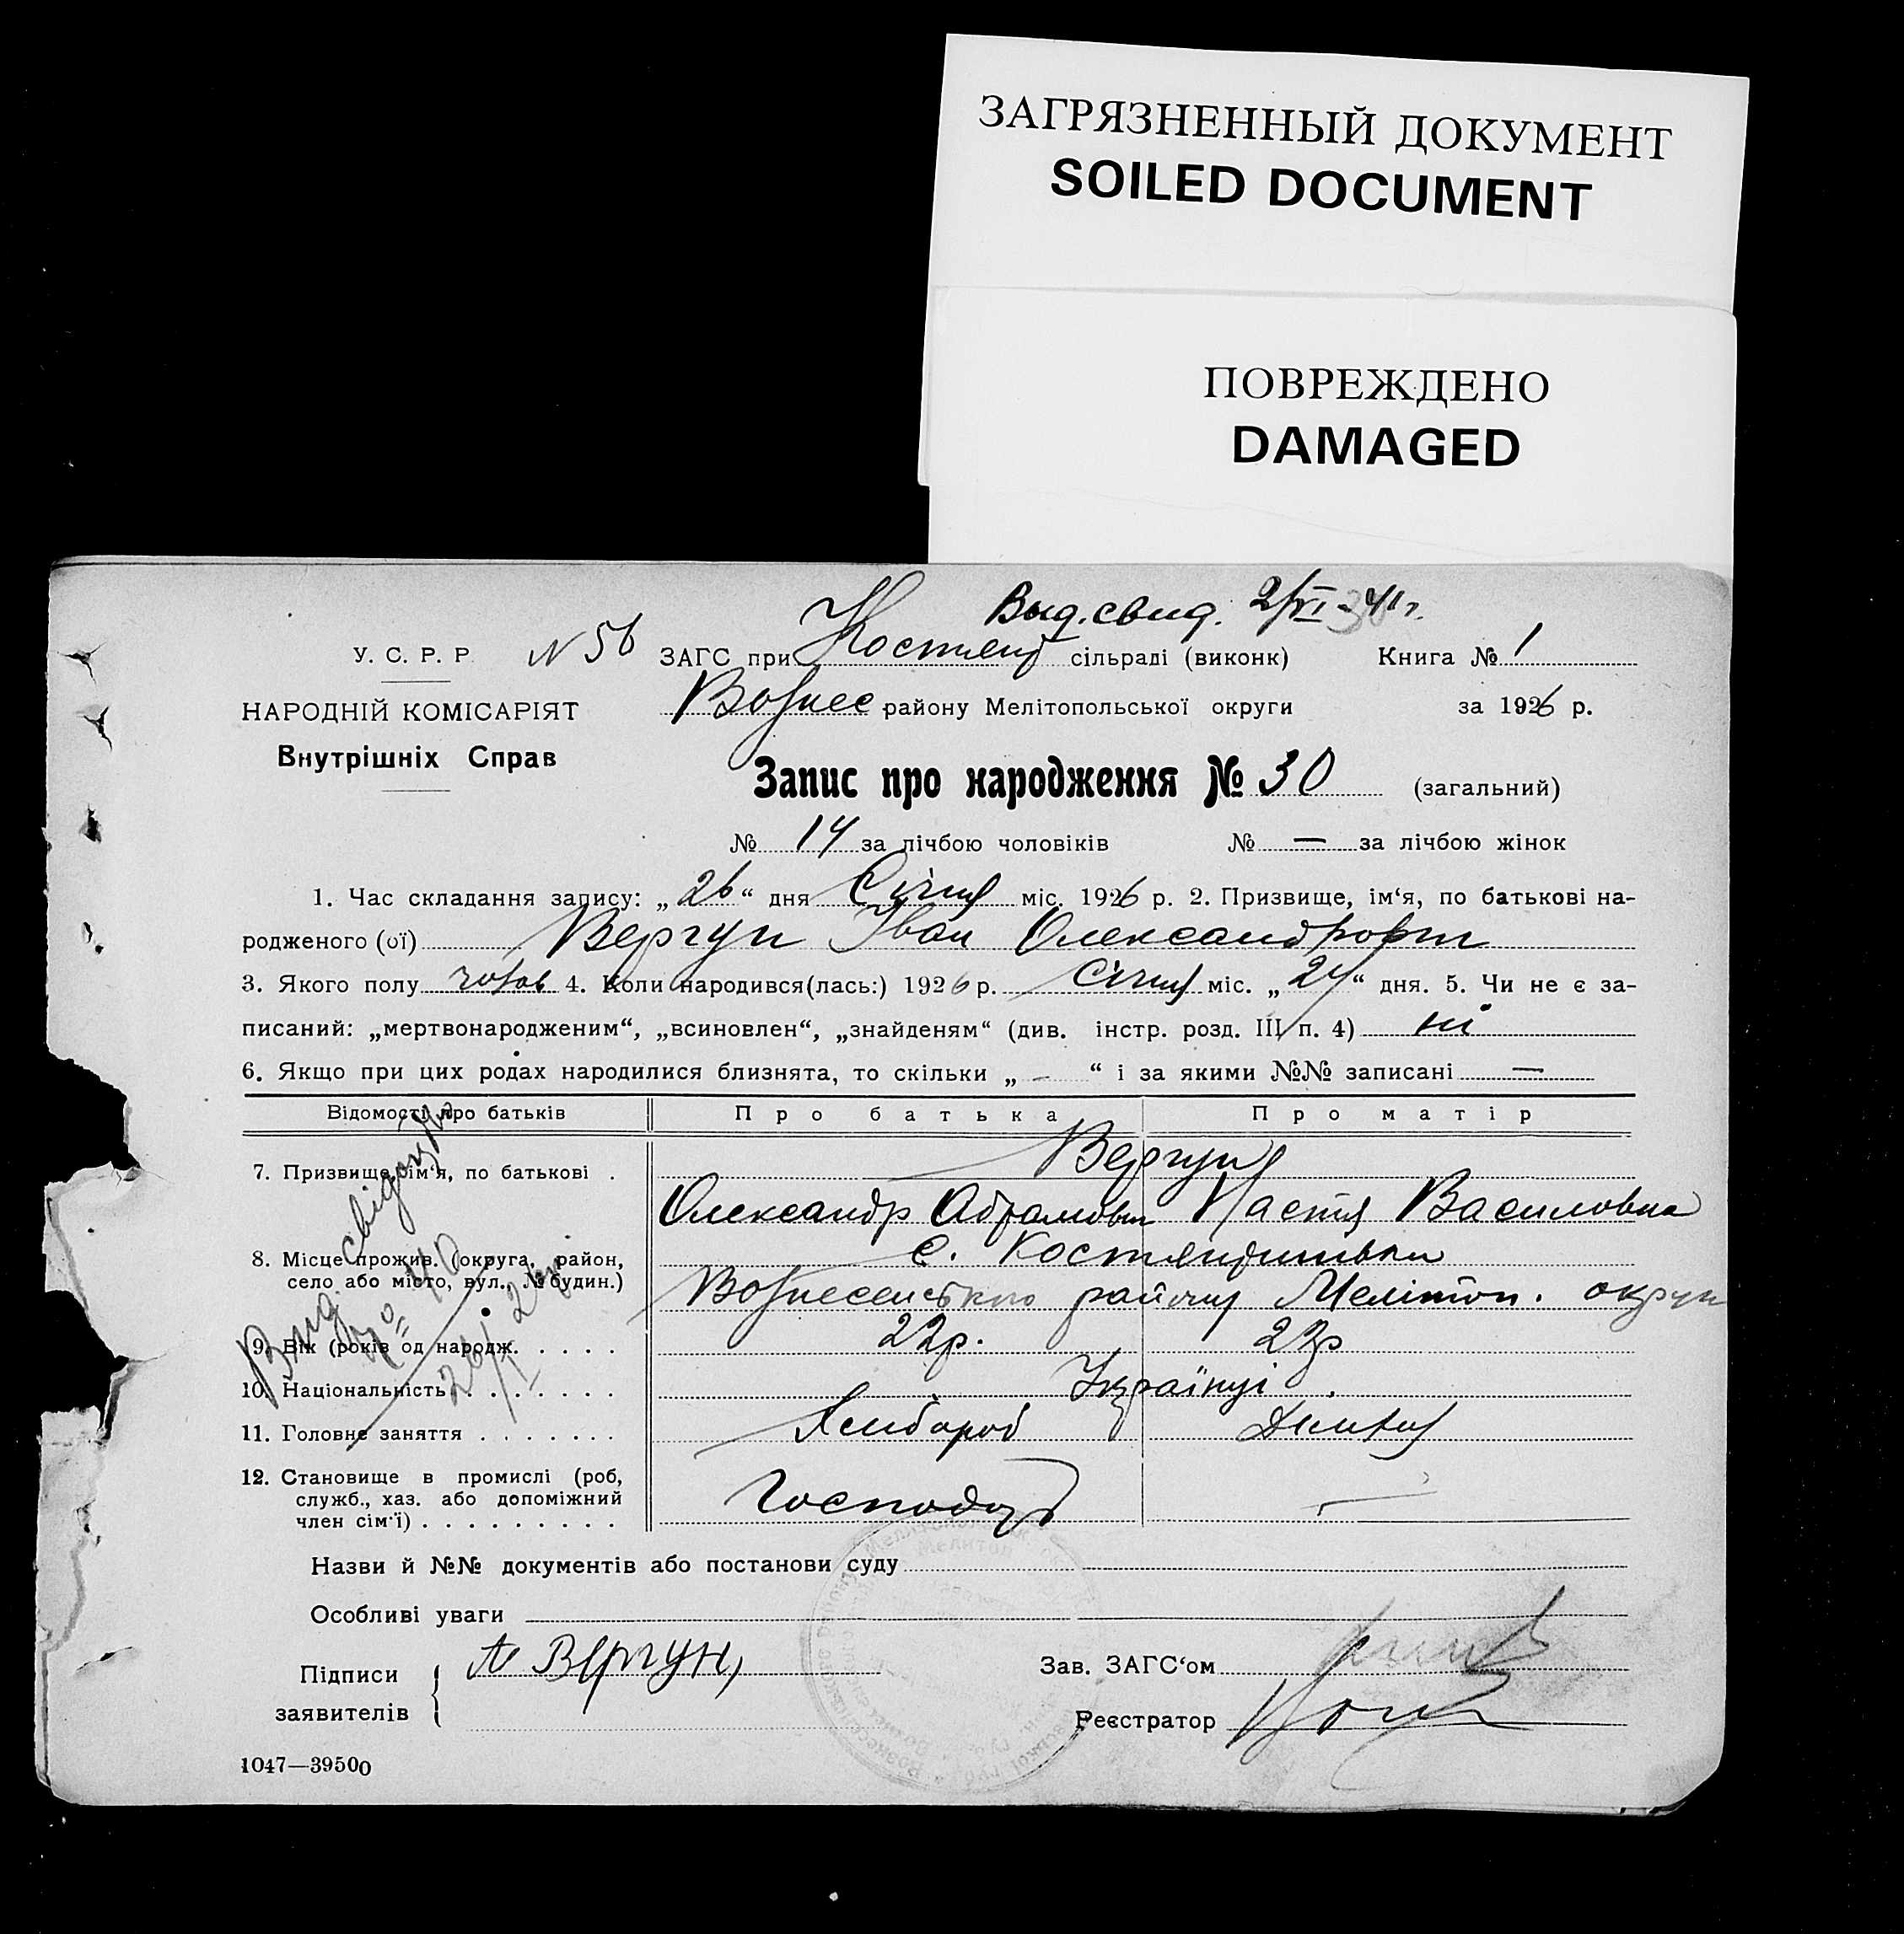 ЗАГРЯЗНЕННЫЙ ДОКУМЕНТ
SOILED DOCUMENT
ПОВРЕЖДЕНО
DAMAGED
Выд. свид. 2/VI-41 г.
У. С. Р. Р. N 56 ЗАГС при Костянт сільраді (виконк) Книга № 1
НАРОДНІЙ КОМІСАРІЯТ Вознес району Мелітопольської округи за 1926 р.
Внутрішніх Справ
Запис про народження № 30 (загальний)
№ 14 за лічбою чоловіків № — за лічбою жінок
1. Час складання запису: „26“ дня Січня міс. 1926 р. 2. Призвище, ім‘я, по батькові на-
родженого (ої) Вергун Іван Олександрович
3. Якого полу чолов 4. Коли народився(лась:) 1926 р. Січня міс. „24“ дня. 5. Чи не є за-
писаний: „мертвонародженим“, „всиновлен“, „знайденям“ (див. інстр. розд. III п. 4) ні
6. Якщо при цих родах народилися близнята, то скільки „ — “ і за якими №№ записані —
Відомості про батьків Про батька Про матір
7. Призвище, ім‘я, по батькові . Вергун
Олександр Абрамович Настя Василовна
8. Місце прожив. (округа, район, с. Костянтинівка
село або місто, вул., № будин.) Вознесенського району Мелітоп. округи
9. Вік (років од народж. . . . . . 22р. 23р
10. Національність . . . . . . . . Українці .
11. Головне заняття . . . . . . . Хлибороб
12. Становище в промислі (роб,
служб., хаз. або допоміжний
член сім‘ї) . . . . . . . . . Господар —
Вид. свідоцтв
Назви й №№ документів або постанови суду
Особливі уваги
Підписи А Вергун
заявителів
Зав. ЗАГС‘ом
Реєстратор
1047—39500